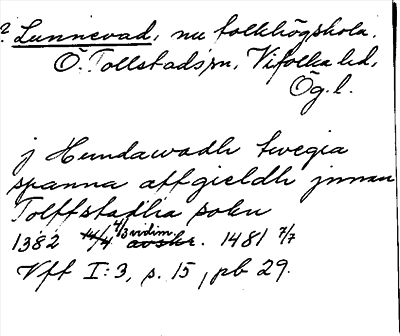 ? Lunnevad, nu folkhögskola,
Ö. Tollstads sn, Vifolka hd,
Ög. l.
j Hundawadh twegia
spanna affgieldh jnnan
Tolffstadha sokn
1382 14/4 4/3 vidim. avskr. 1481 7/7
Vff I:3, s. 15, pb 29.